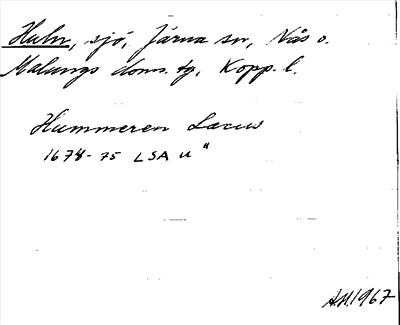 Huln, sjö, Järna sn, Nås o.
Malungs doms. tg, Kopp. l.
Hummeren Lacus
1674-75 LSA U"
A.H. 1967